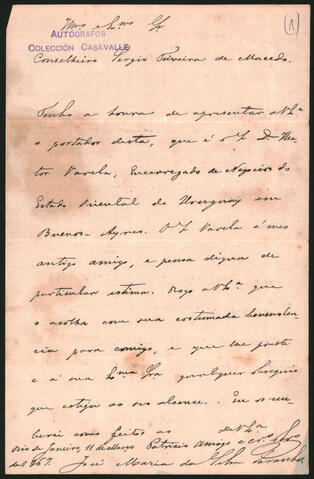 Illmo e Exmo Sr
(1)
AUTÓGRAFOS
COLECCIÓN CASAVALLE
Conselheiro Sergio Teixeira de Macedo.
Tenho a honra de apresentar a V. Exa
o portador desta, que é o Sr. D. Hec-
tor Varela, Encarregado de Negocios do
Estado Oriental do Uruguay em
Buenos-Ayres. O Sr. Varela é meu
antigo amigo, e pessoa digna de
particular estima. Rogo a V. Exa que
o acolha com sua costumada benevolen-
cia para comigo, e que lhe preste
e á sua Exma Sra qualquer obsequio
que esteja ao seu alcance. Eu os
berei como feitos ao
de V. Exa
Rio de Janeiro, 11 de Março
Patricio Amigo e
de 1867.
José Maria da Silva Paranhos